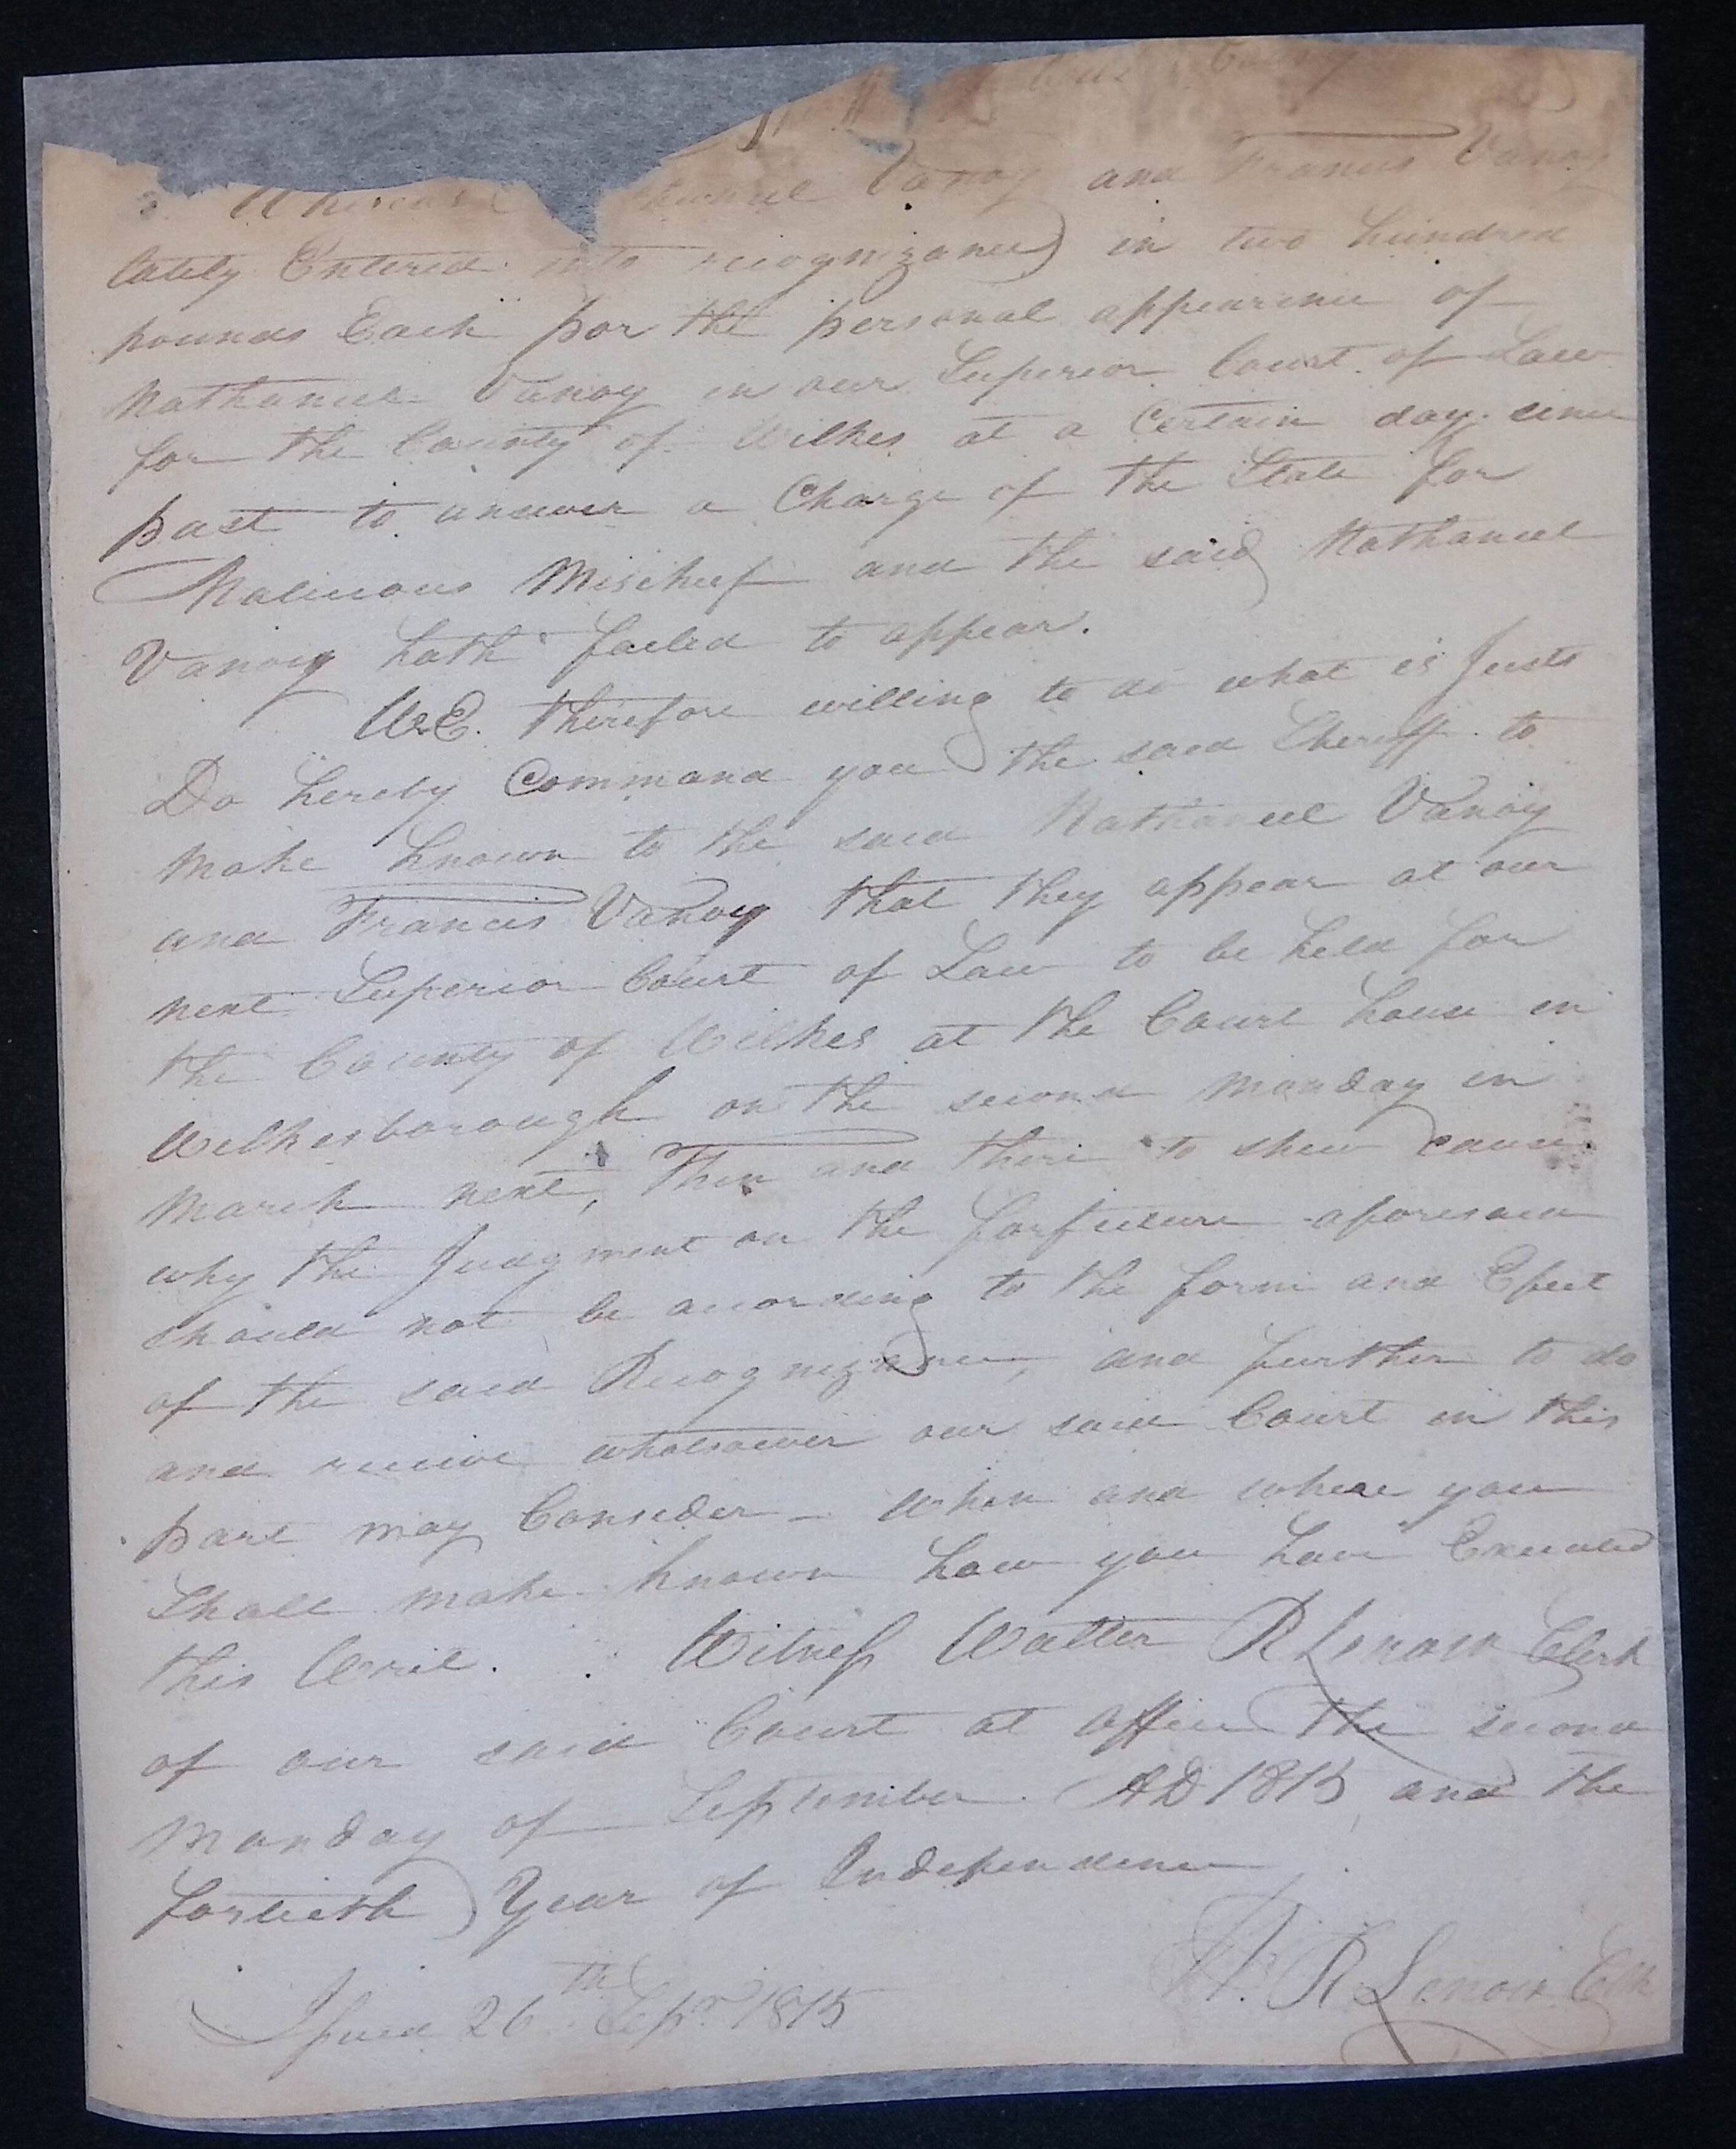 Whereas Vanoy and Francis Vanoy
lately Entered into recognizance in two hundred
pounds Each for the personal appearance of
Nathaniel Vanoy in our Superior Court of Law
for the County of Wilkes at a Certain day since
past to answer a Charge of the State for
Malicious Mischief and the said Nathaniel
Vanoy hath failed to appear.
WE. therefore willing to do what is Just
Do hereby Command you the said Sheriff to
Make known to the said Nathaniel Vanoy
and Francis Vanoy that they appear at our
next Superior Court of Law to be held for
the County of Wilkes at the Court house in
Wilkesborough on the second Monday in
March next, Then and there to shew cause
why the Judgment on the forfeiture aforesaid
should not be according to the form and Efect
of the said Recognizance, and further to do
and receive whatsoever our said Court in this
part may Consider - When and where you
Shall make known how you have Executed
this Writ. Witness Walter R Lenoir Clerk
of our said Court at office the second
Monday of September AD 1815 and the
fortieth Year of Independence
W. R Lenoir Clk
Issued 26th Sepr 1815